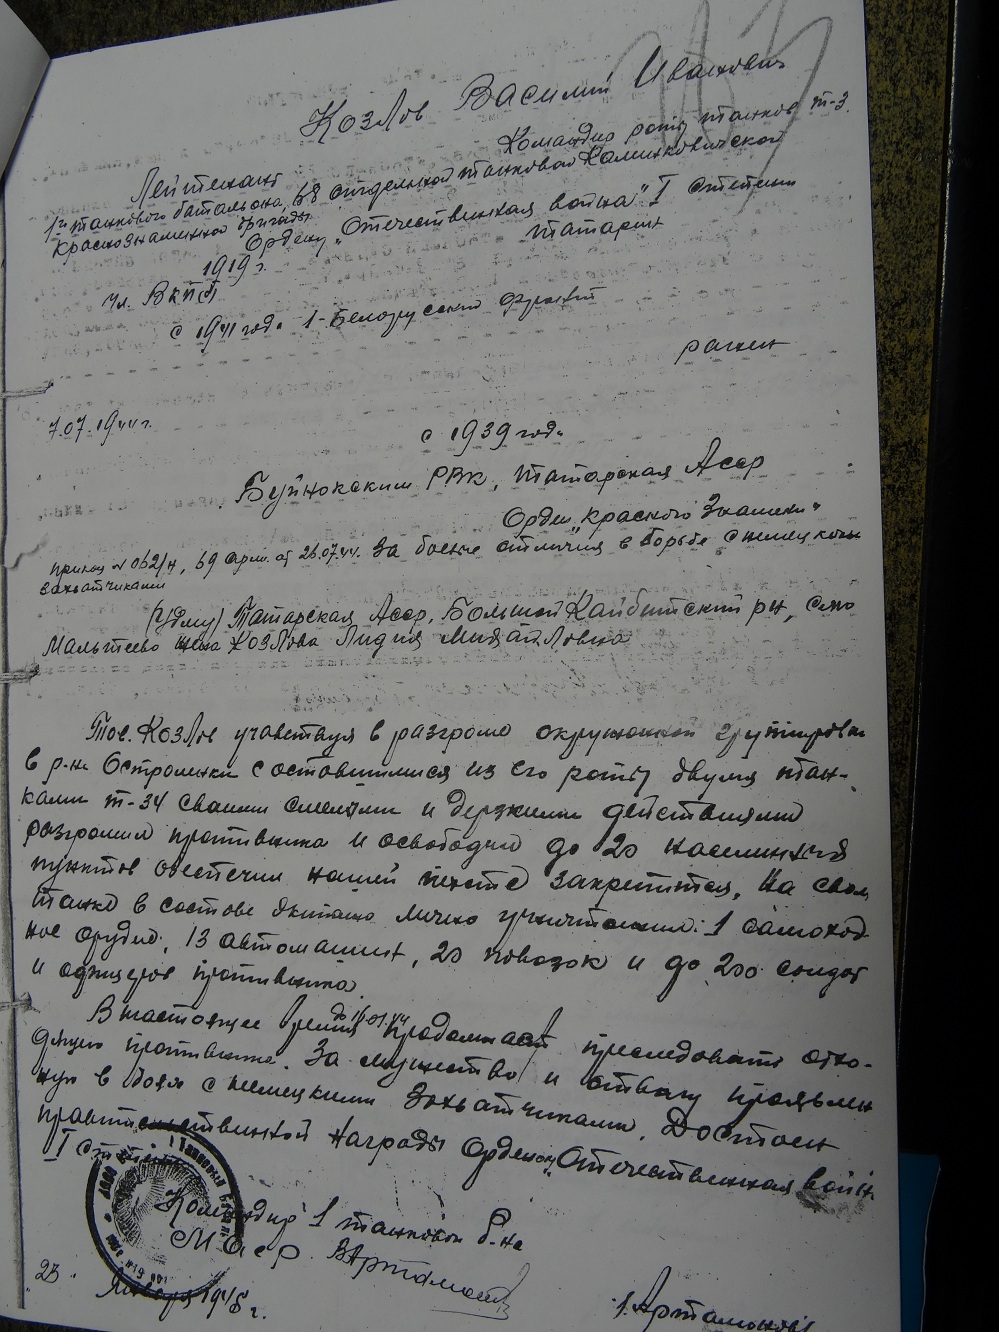 Козлов Василий Иванович
Лейтенант Командир роты танков Т-3
1го танкового батальона, 68 отдельной танковой Калинковической
Краснознаменной бригады
Ордену „Отечественная война" I степени
1919 г. татарин
Чл. ВКПб
с 1941 года 1-Белорусский фронт
ранен
7.07.1944 г.
с 1939 года
Буйнокским РВК, Татарская Асср
Орден „красного Знамени"
приказ № 062/н, 69 Арм. от 26.07.44. За боевые отличия в борьбе с немецкими
захватчиками
Татарская Асср, Большой Кайбитский рн, село
Малытеево жена Козлова Лидия Михайловна
Тов. Козлов учавствуя в разгроме окруженной группировки
в р-не с оставшимися из его роты двумя тан-
ками т-34 своими смелыми и дерзкими действиями
разгромил противника и освободил до 20 населенных
пунктов обеспечил нашей пехоте закрепится, На своем
танке в составе экипажа лично уничтожил: 1 самоход
ное орудие, 13 автомашин, 20 повозок и до 200 солдат
и офицеров противника
В настоящее время продолжает преследовать отхо-
дящего противника. За мужество и отвагу проявлен
ную в боях с немецкими захватчиками. Достоин
правительственной награды Орденом „Отечественная война
I степени
Командир 1 танковой б-на
В Артамонов
23. Января 1945 г. Артамонов